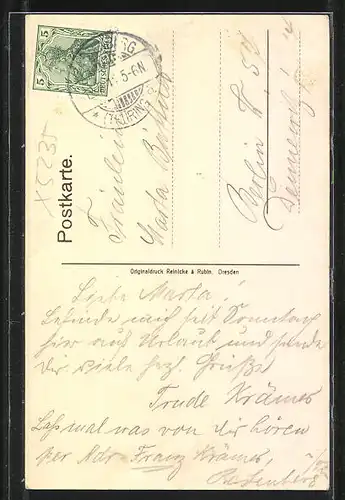 5
DEUTSCHES REICH
5-6N
(THÜRING
Postkarte.
Fräulein
Marta
Berlin W. 57
Originaldruck Reinicke & Rubin, Dresden
Liebe Marta!
Befinde mich seit Sonntag
hier auf Urlaub und sende
Dir viele hzl. Grüße
Trude Krämer
Laß mal was von dir hören
per Adr. Franz Krämer,